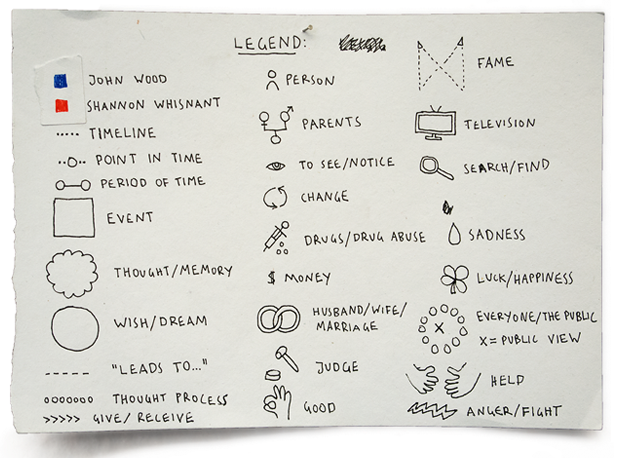 LEGEND:
JOHN WOOD
SHANNON WHISNANT
TIMELINE
POINT IN TIME
PERIOD OF TIME
EVENT
THOUGHT/MEMORY
WISH/DREAM
"LEADS TO..."
THOUGHT PROCESS
>>>>> GIVE/RECEIVE
PERSON
PARENTS
TO SEE/NOTICE
CHANGE
DRUGS/DRUG ABUSE
$ MONEY
HUSBAND/WIFE/
MARRIAGE
JUDGE
GOOD
FAME
TELEVISION
SEARCH/FIND
SADNESS
LUCK/HAPPINESS
X
EVERYONE/THE PUBLIC
X= PUBLIC VIEW
HELD
ANGER/FIGHT